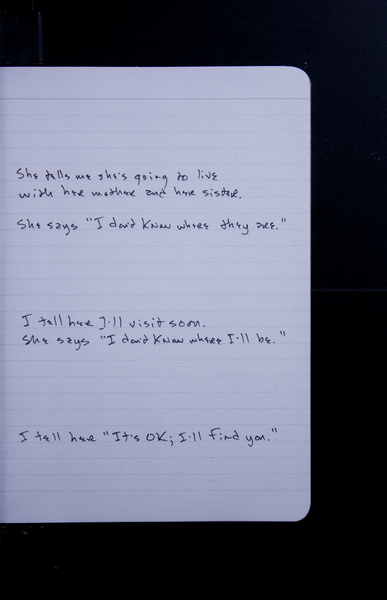 She tells me she's going to live
with her mother and her sister.
She says "I don't know where they are."
I tell her I'll visit soon.
She says "I don't know where I'll be."
I tell her "It's OK; I'll find you."